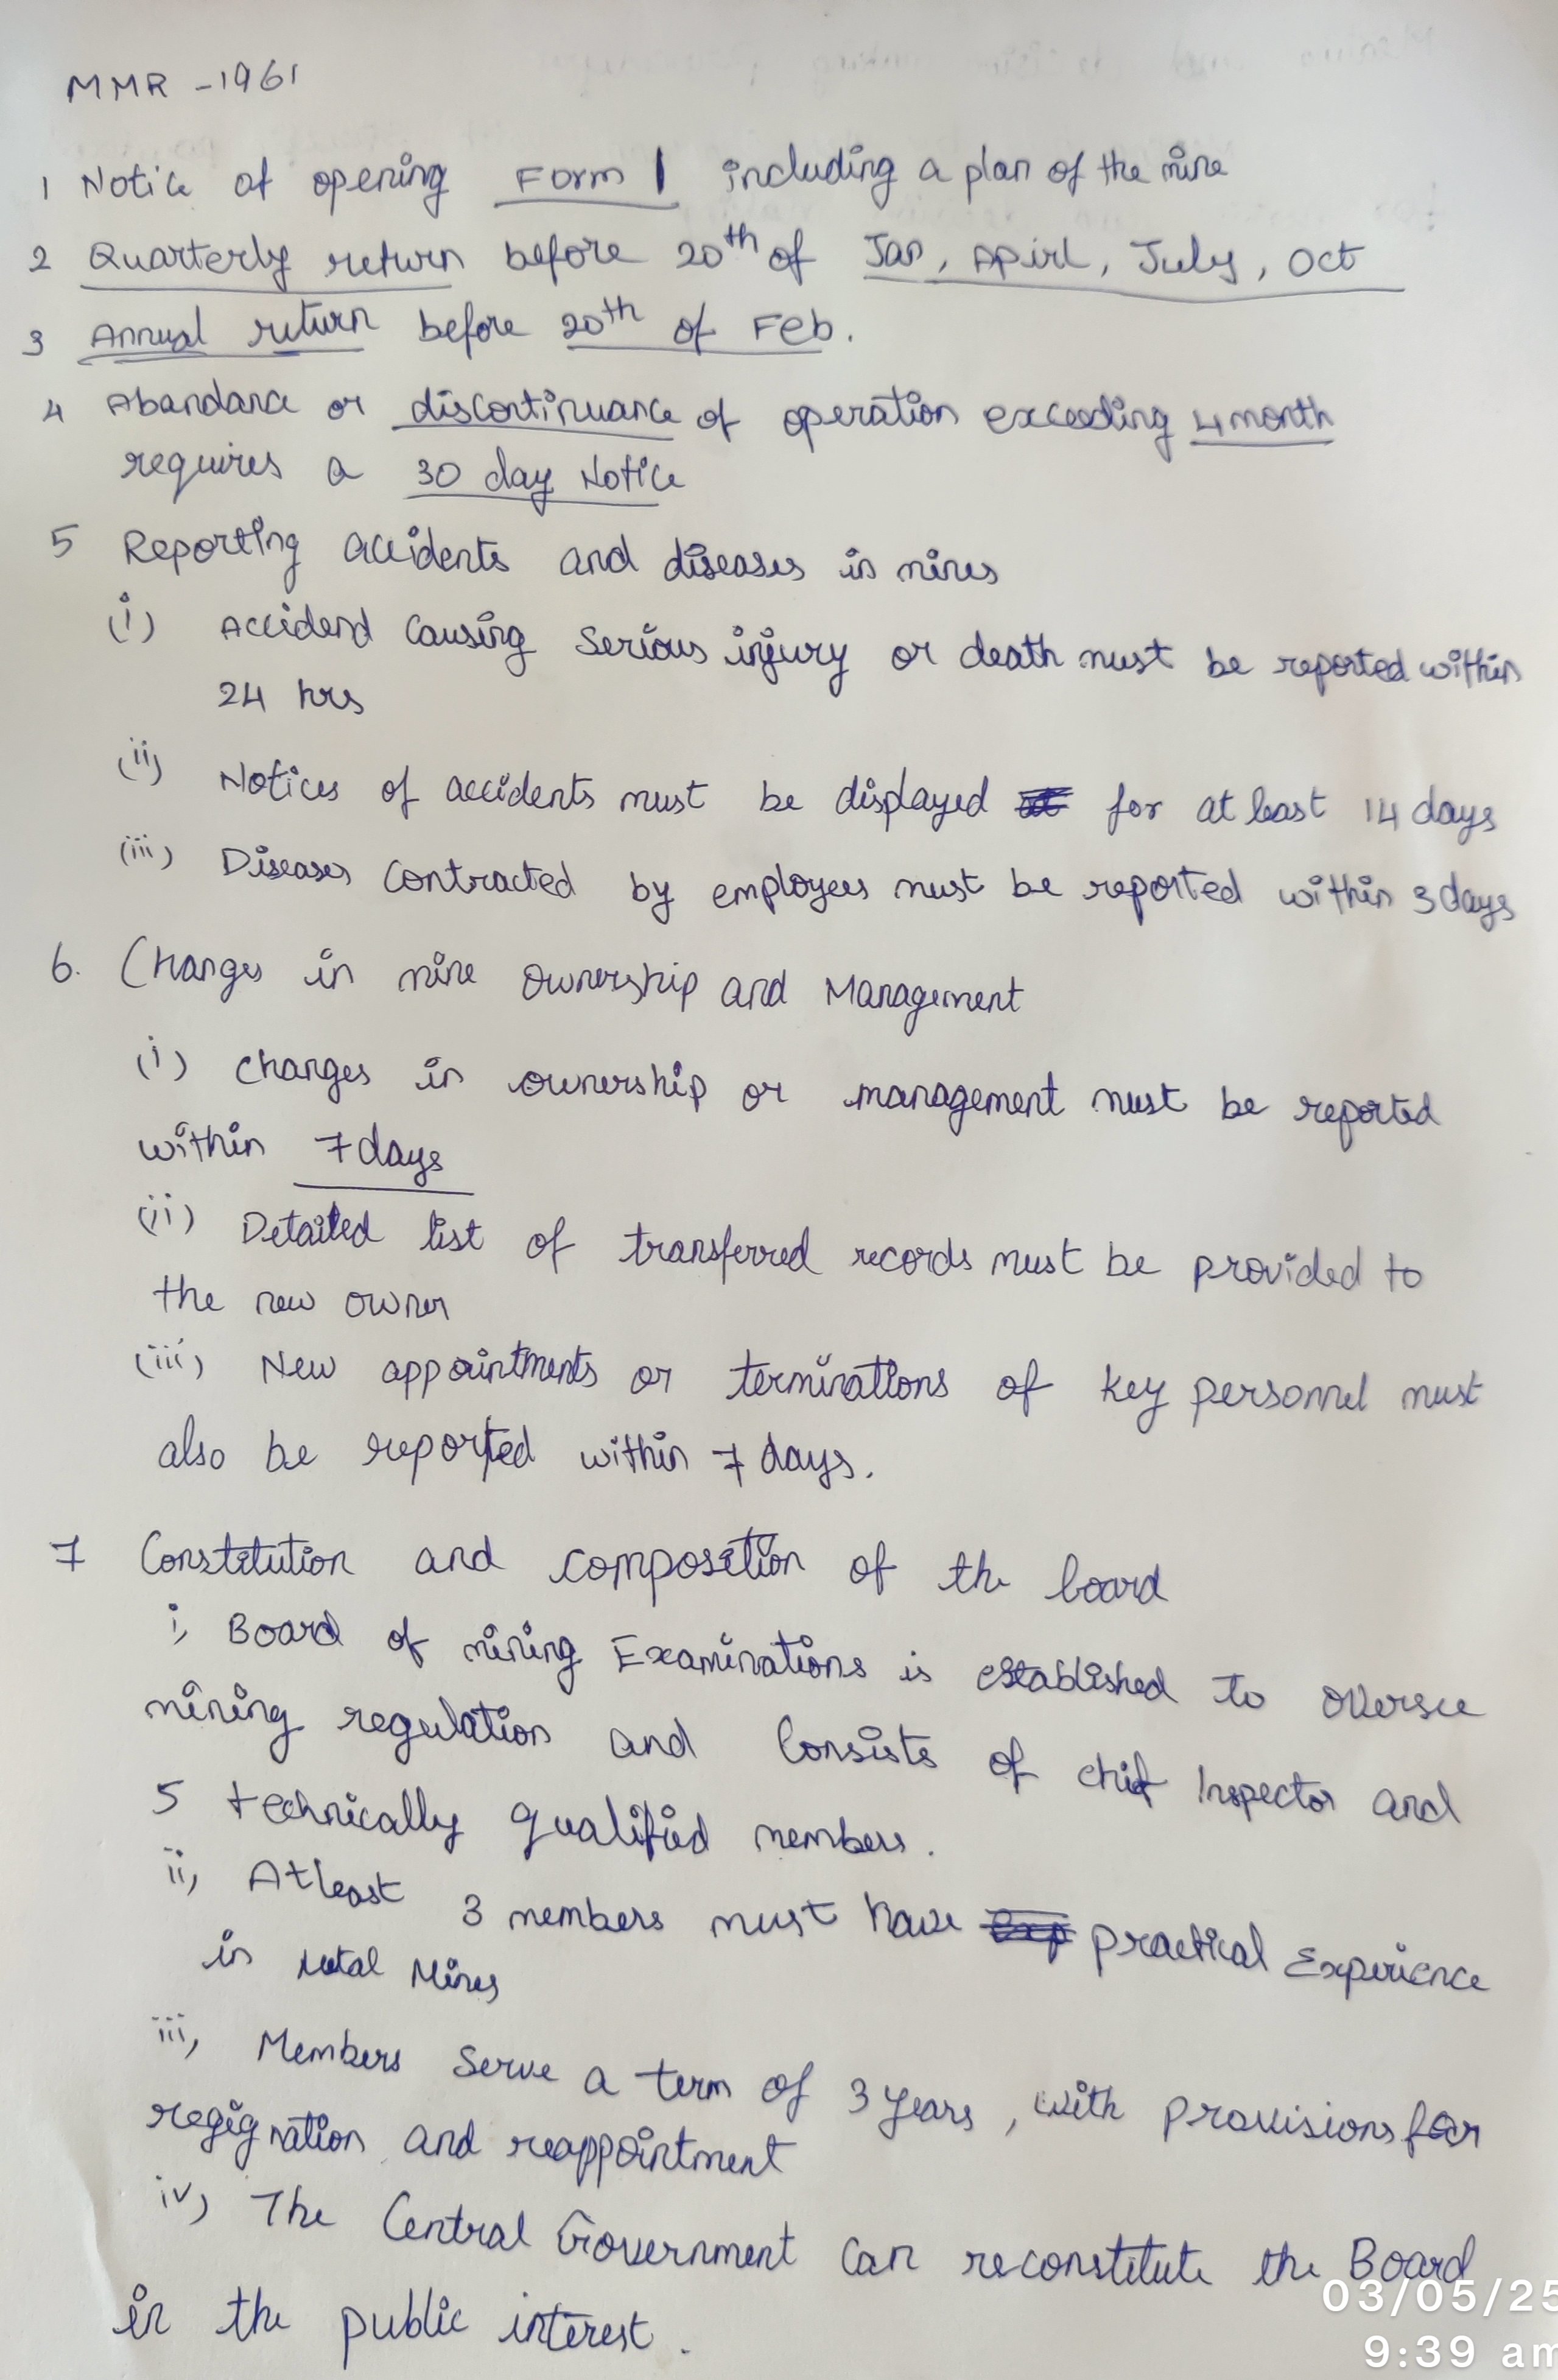 MMR - 1961
1 Notice of opening Form 1 including a plan of the mine
2 Quarterly return before 20th of Jan, Apirl, July, Oct
3 Annual return before 20th of Feb.
4 Abandance or discontinuance of operation exceeding 4 month
requires a 30 day Notice
5 Reporting accidents and diseases in mines
(i) Accidend causing serious injury or death must be reported within
24 hrs
(ii) Notices of accidents must be displayed for at least 14 days
(iii) Diseases contracted by employees must be reported within 3 days
6. Changes in mine ownership and Management
(i) changes in ownership or management must be reported
within 7 days
(ii) Detailed list of transferred records must be provided to
the new owner
(iii) New appointments or terminations of key personnel must
also be reported within 7 days.
7 Constitution and composition of the board
i, Board of mining Examinations is established to oversee
mining regulation and consists of chif Inspector and
5 technically qualified members.
ii, Atleast 3 members must have practical Experience
in Metal Mines
iii, Members serve a term of 3 years, with provisions for
regignation and reappointment
iv) The Central Government can reconstitute the Board
in the public interest.
03/05/25
9:39 am